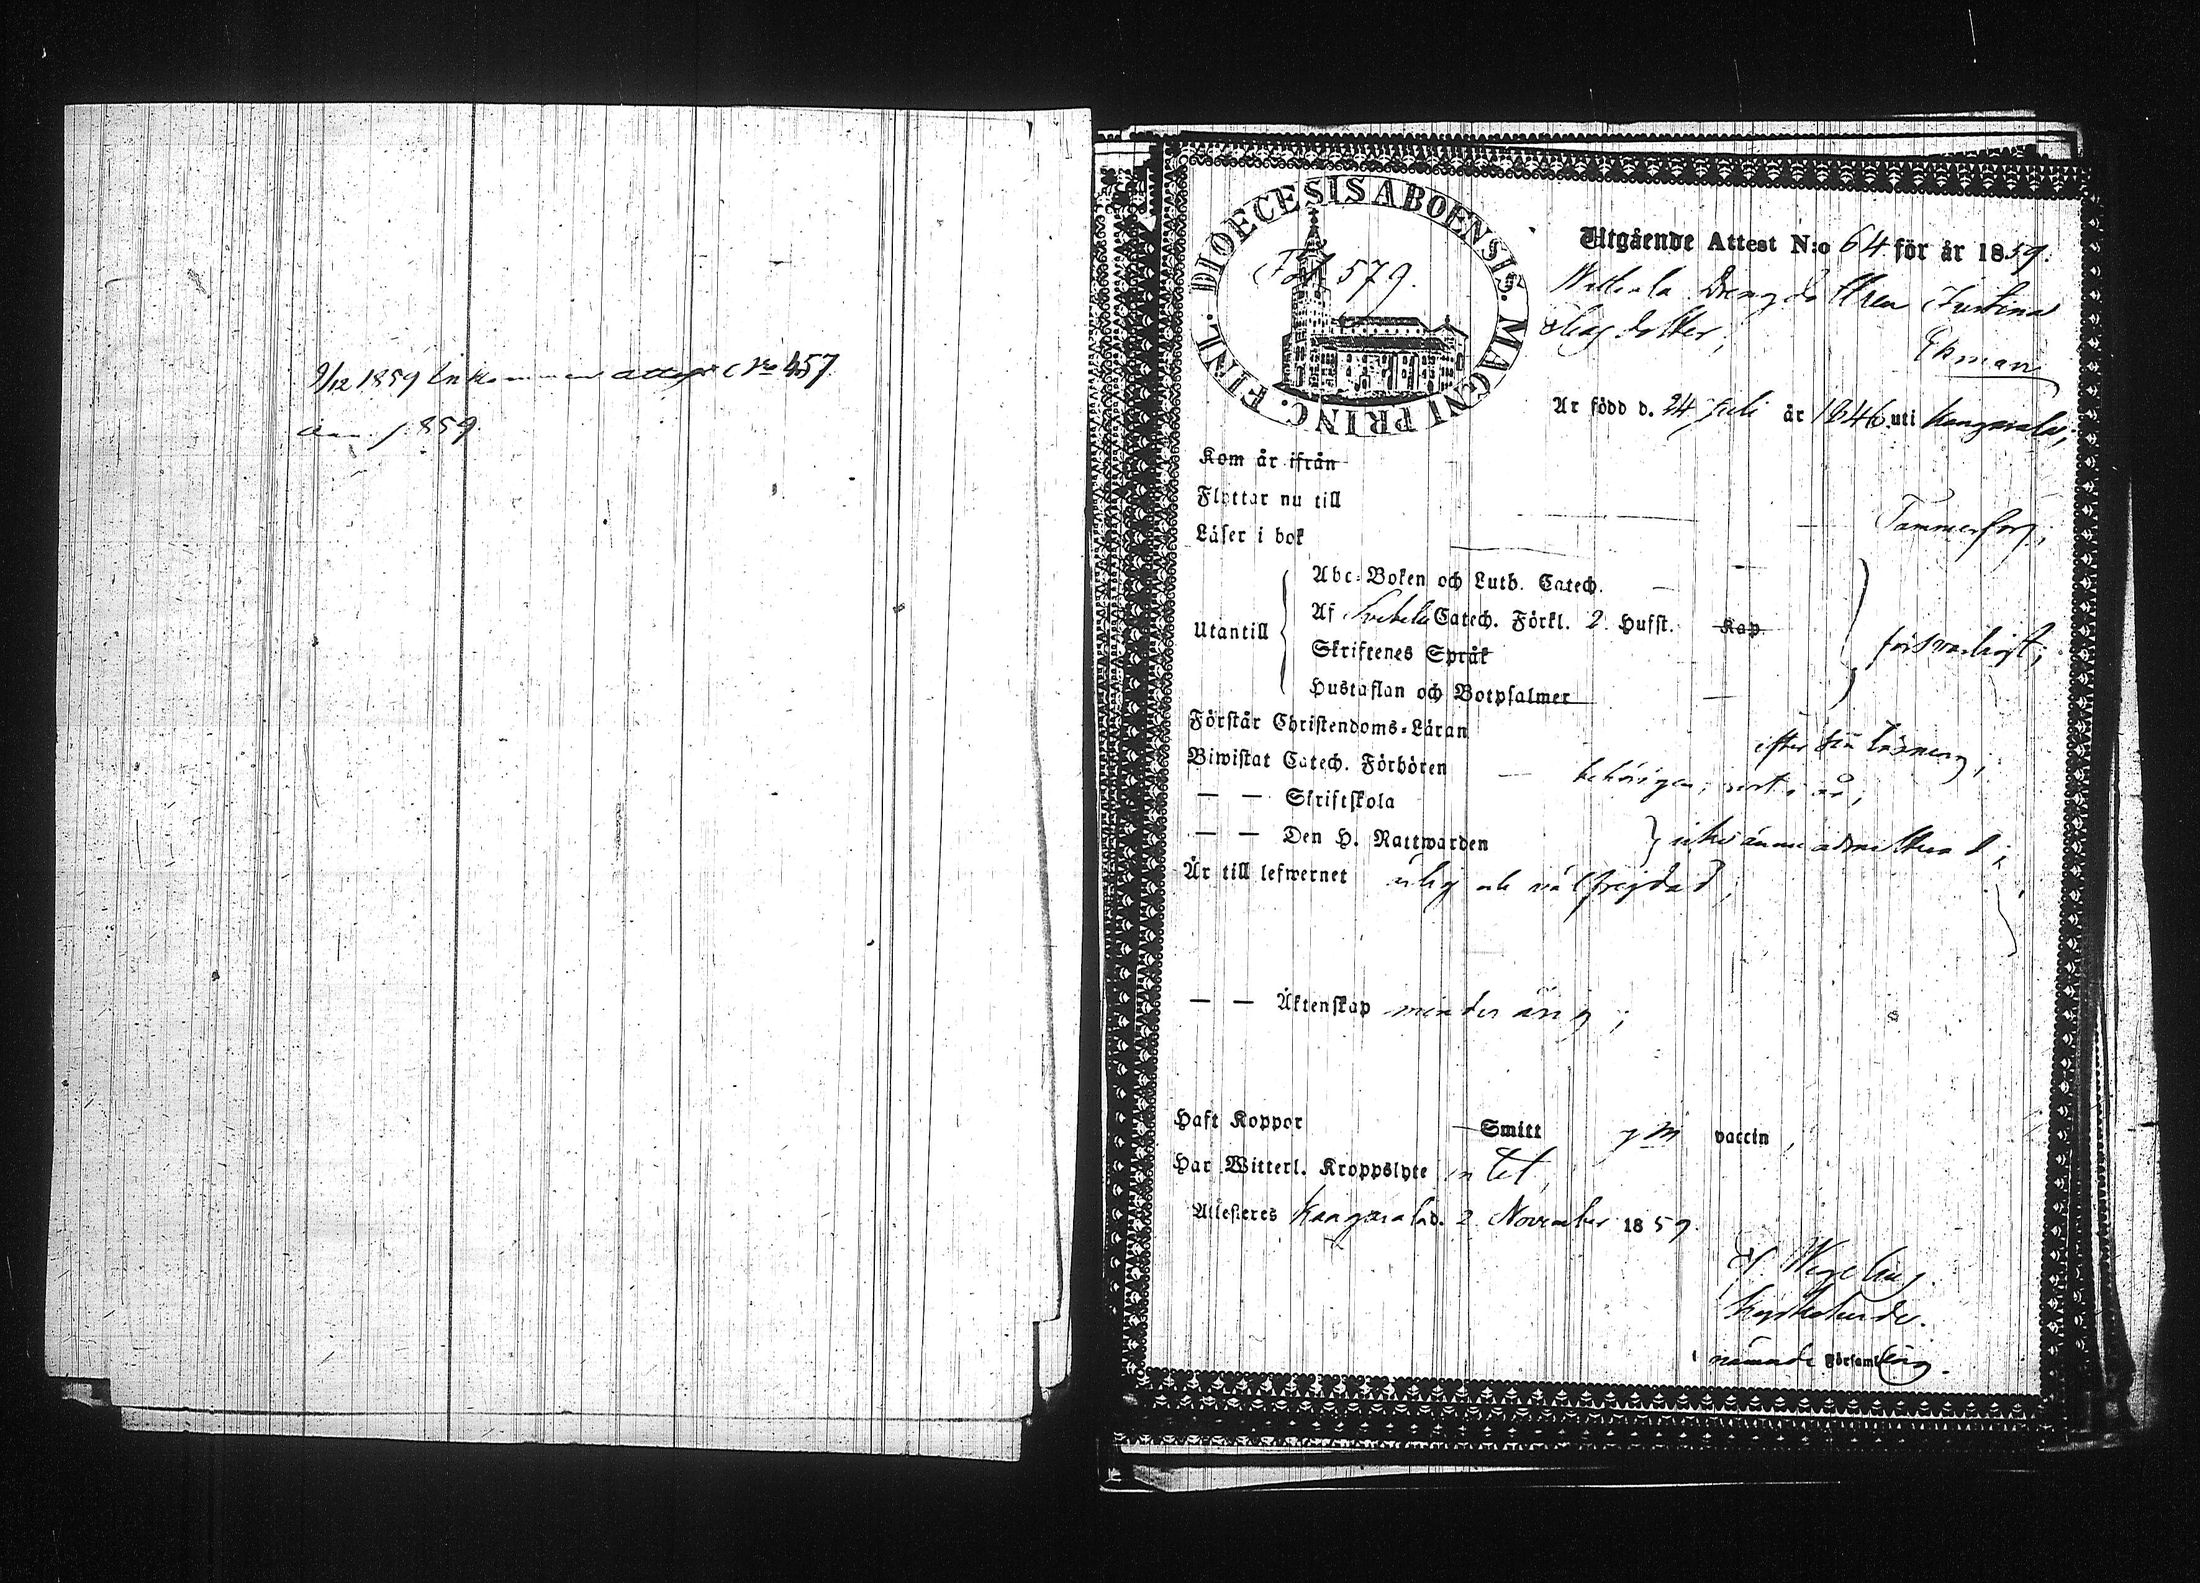 9/12 1859 Inkommen attest No 457
ann. 1859.
DIOECESIS ABOENSIS. MAGNI PRINC. FINL.
Fol. 579.
Utgående Attest N:o 64 för år 1859.
Justina
dotter,
Ekman
Är född d. 24 Juli år 1846 uti Kangasala;
Kom år ifrån
Flyttar nu till Tammerfors,
Läser i bok
Utantill
Abc-Boken och Luth. Catech.
Af Svebelii Catech. Förkl. 2 Hufst. Kap.
Skriftenes Språk
Hustaflan och Botpsalmer
försvarligt;
Förstår Christendoms-Läran efter sin läsning,
Biwistat Catech. Förhören behörigen,
— — Skriftskola
— — Den H. Nattwarden icke ännu admitterad;
Är till lefwernet ärlig och välfrejdad;
— — Äktenskap minderårig;
Haft Koppor Smitt genom vaccin,
Har Witterl. Kroppslyte intet,
Attesteres Kangasala d. 2 November 1859.
Wegelius
Kyrkoherde.
i nämnde Församling.